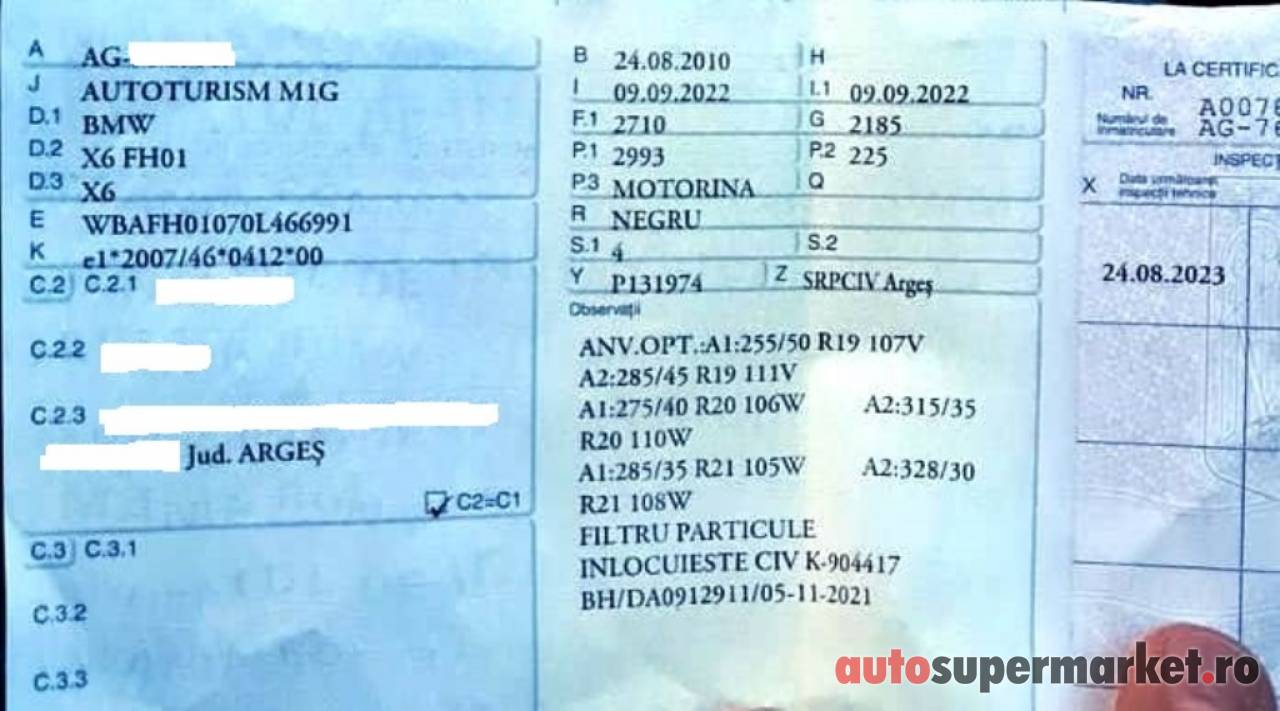 A AG-
J AUTOTURISM M1G
D.1 BMW
D.2 X6 FH01
D.3 X6
E WBAFH01070L466991
K e1*2007/46*0412*00
C.2 C.2.1
C.2.2
C.2.3
Jud. ARGEȘ
C2=C1
C.3 C.3.1
C.3.2
C.3.3
B 24.08.2010 H
I 09.09.2022 I.1 09.09.2022
F.1 2710 G 2185
P.1 2993 P.2 225
P3 MOTORINA Q
R NEGRU
S.1 4 S.2
Y P131974 Z SRPCIV Argeș
Observații
ANV.OPT.:A1:255/50 R19 107V
A2:285/45 R19 111V
A1:275/40 R20 106W A2:315/35
R20 110W
A1:285/35 R21 105W A2:328/30
R21 108W
FILTRU PARTICULE
INLOCUIESTE CIV K-904417
BH/DA0912911/05-11-2021
LA CERTIFIC
NR. A0078
Numărul de
înmatriculare AG-78
INSPECT
X Data următoarei
inspecții tehnice
24.08.2023
autosupermarket.ro